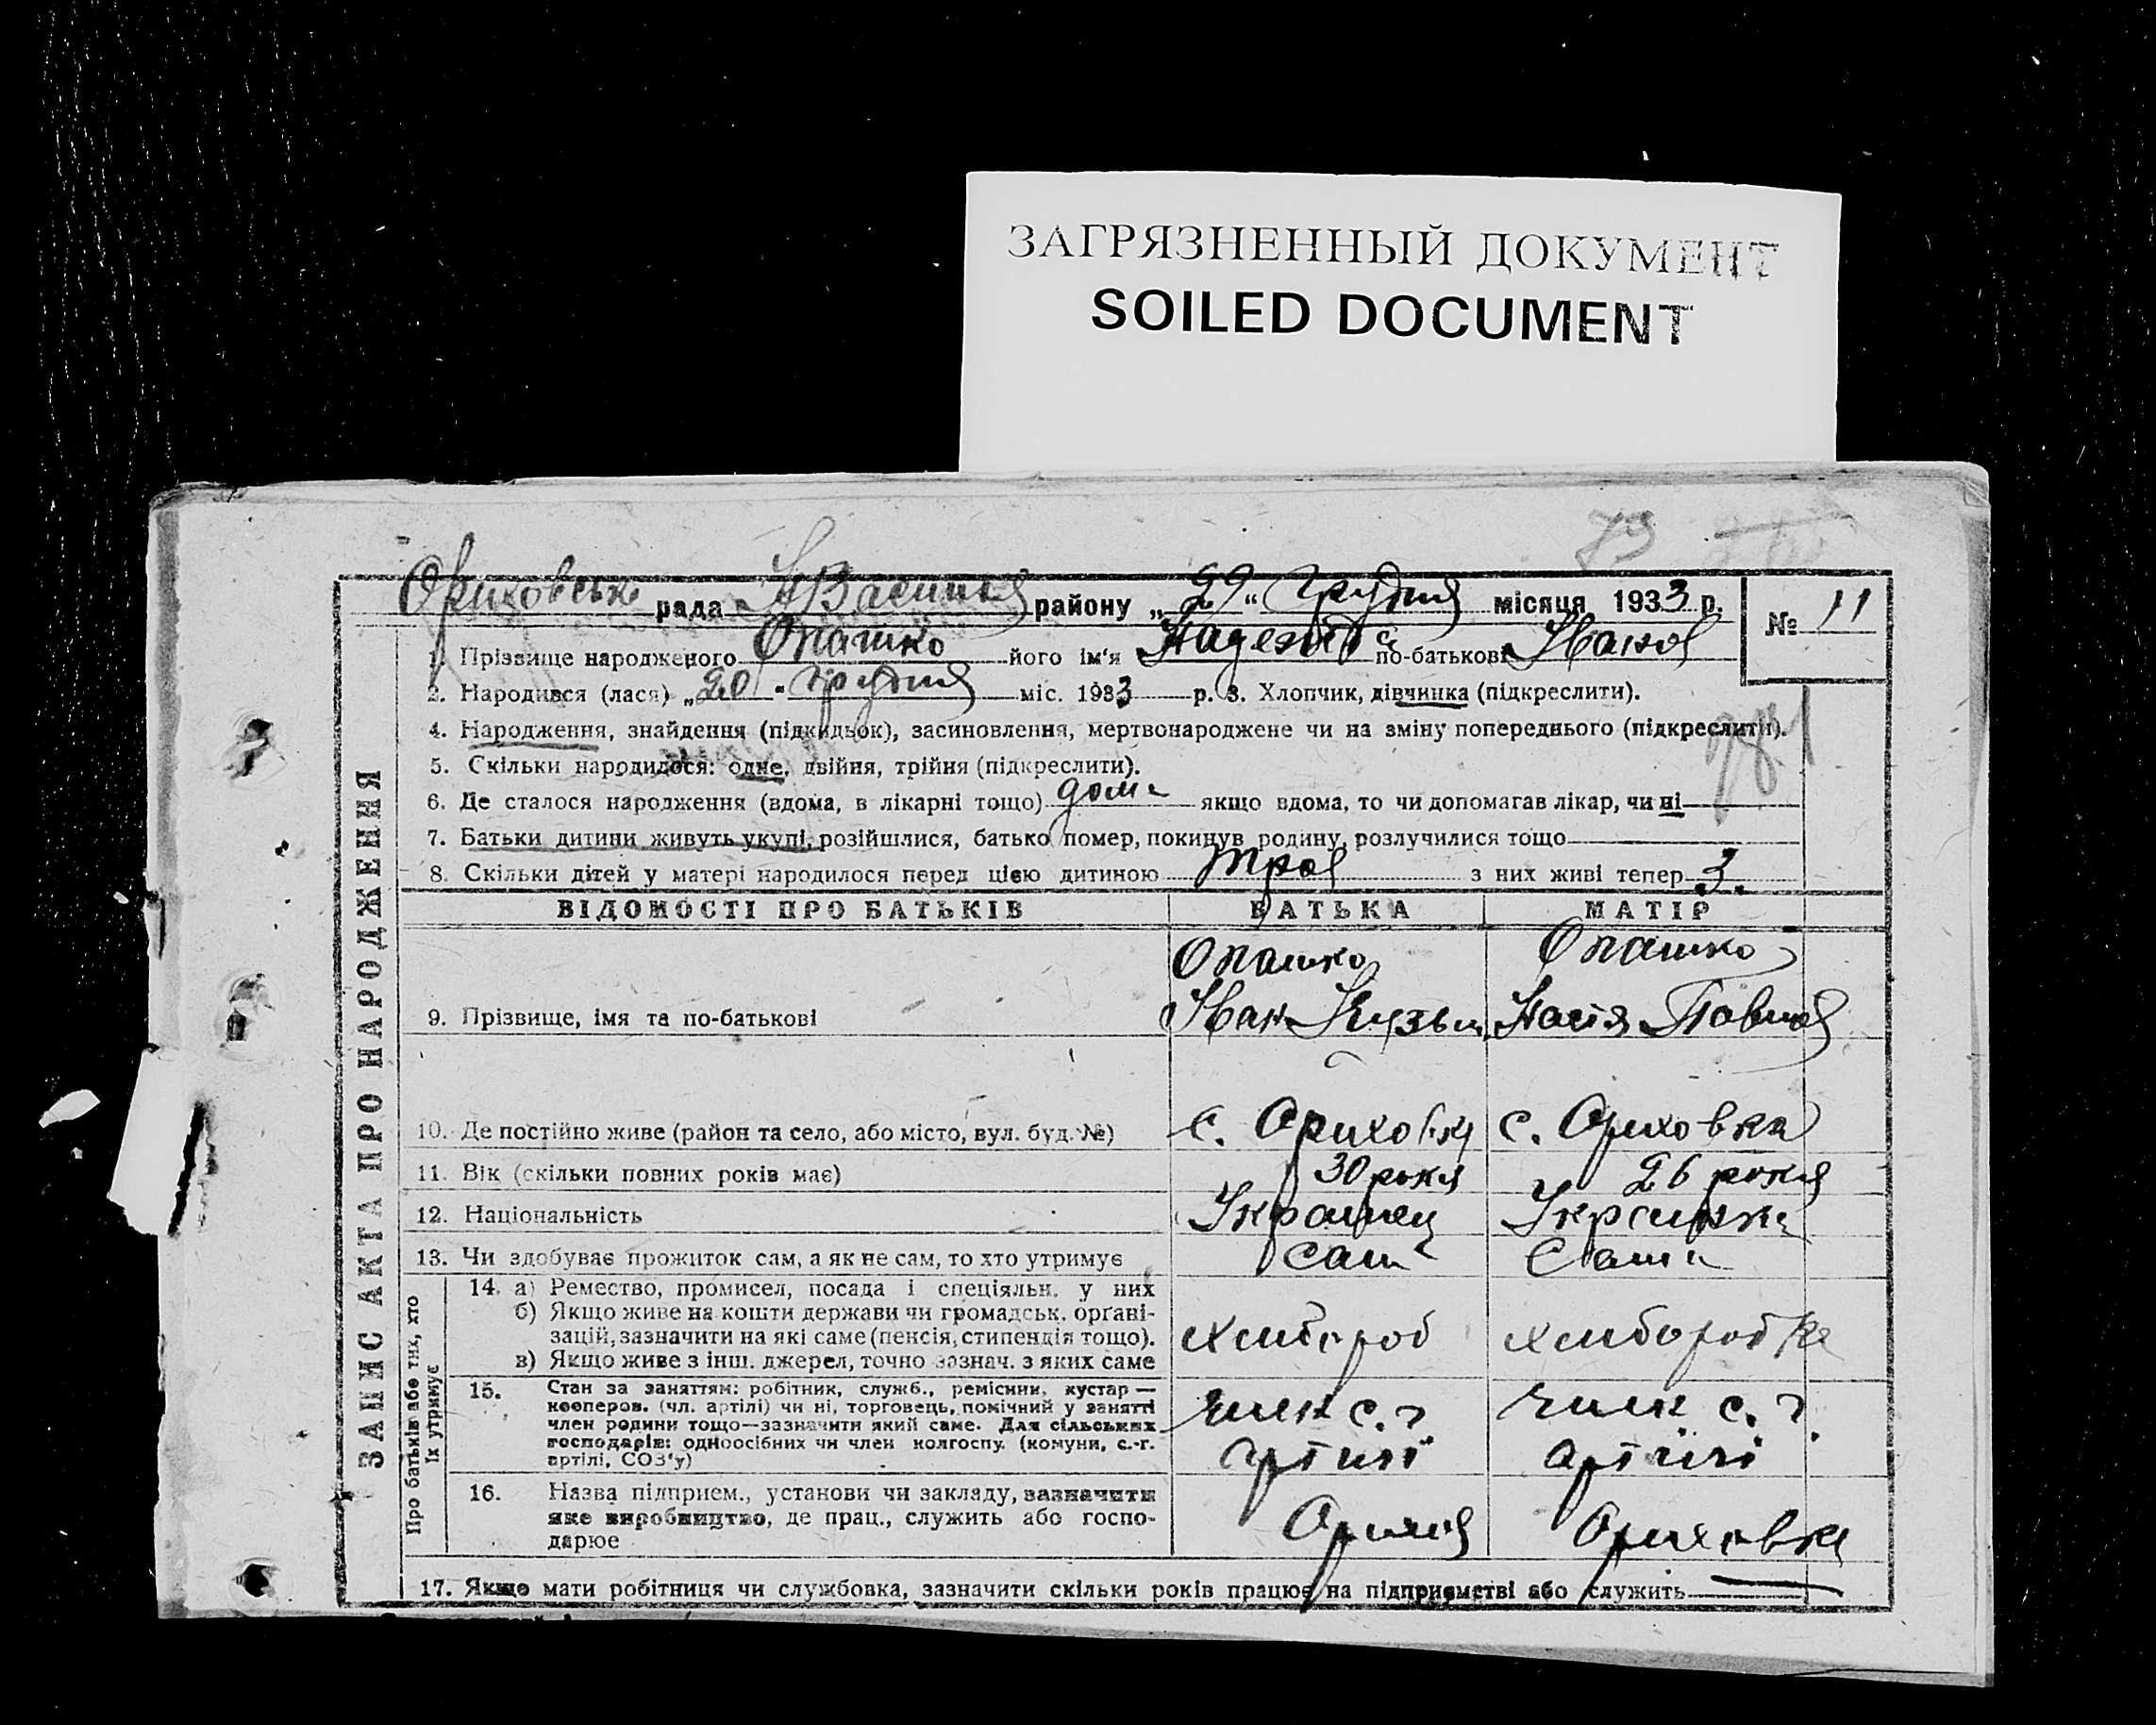 ЗАГРЯЗНЕННЫЙ ДОКУМЕНТ
SOILED DOCUMENT
79
Ориховська рада района „29“ Грудня місяця 1933 р.
№ 11
1. Прізвище народженого Опашко його ім'я по-батькові Іванов
2. Народився (лася) „20“ грудня міс. 1933 р. 3. Хлопчик, дівчинка (підкреслити).
4. Народження, знайдення (підкидьок), засиновлення, мертвонароджене чи на зміну попереднього (підкреслити).
5. Скільки народилося: одне, двійня, трійня (підкреслити).
6. Де сталося народження (вдома, в лікарні тощо) дома якщо вдома, то чи допомагав лікар, чи ні
7. Батьки дитини живуть укупі, розійшлися, батько помер, покинув родину, розлучилися тощо
8. Скільки дітей у матері народилося перед цією дитиною троє з них живі тепер 3.
ЗАПИС АКТА ПРО НАРОДЖЕННЯ
ВІДОМОСТІ ПРО БАТЬКІВ БАТЬКА МАТІР
Опашко Опашко
9. Прізвище, імя та по-батькові Іван Кузьм. Настя Павлов
10. Де постійно живе (район та село, або місто, вул. буд. №) с. Ориховка с. Ориховка
11. Вік (скільки повних років має) 30 рокия 26 рокия
12. Національність Українец Українка
13. Чи здобуває прожиток сам, а як не сам, то хто утримує сам Сама
Про батьків або тих, хто їх утримує
14. а) Ремество, промисел, посада і спеціяльн. у них
б) Якщо живе на кошти держави чи громадськ. орґані-
зацій, зазначити на які саме (пенсія, стипендія тощо).
в) Якщо живе з інш. джерел, точно зазнач. з яких саме
хлибороб хлиборобка
15. Стан за заняттям: робітник, служб., ремісник, кустар —
кооперов. (чл. артілі) чи ні, торговець, помічний у занятті
член родини тощо—зазначити який саме. Для сільських
господарів: одноосібних чи член колгоспу (комуни, с.-г.
артілі, СОЗ'у)
член с. г член с. г.
артилі артилі
16. Назва підприєм., установи чи закладу, зазначити
яке виробництво, де прац., служить або госпо-
дарює
Ориховка
17. Якщо мати робітниця чи службовка, зазначити скільки років працює на підприємстві або служить